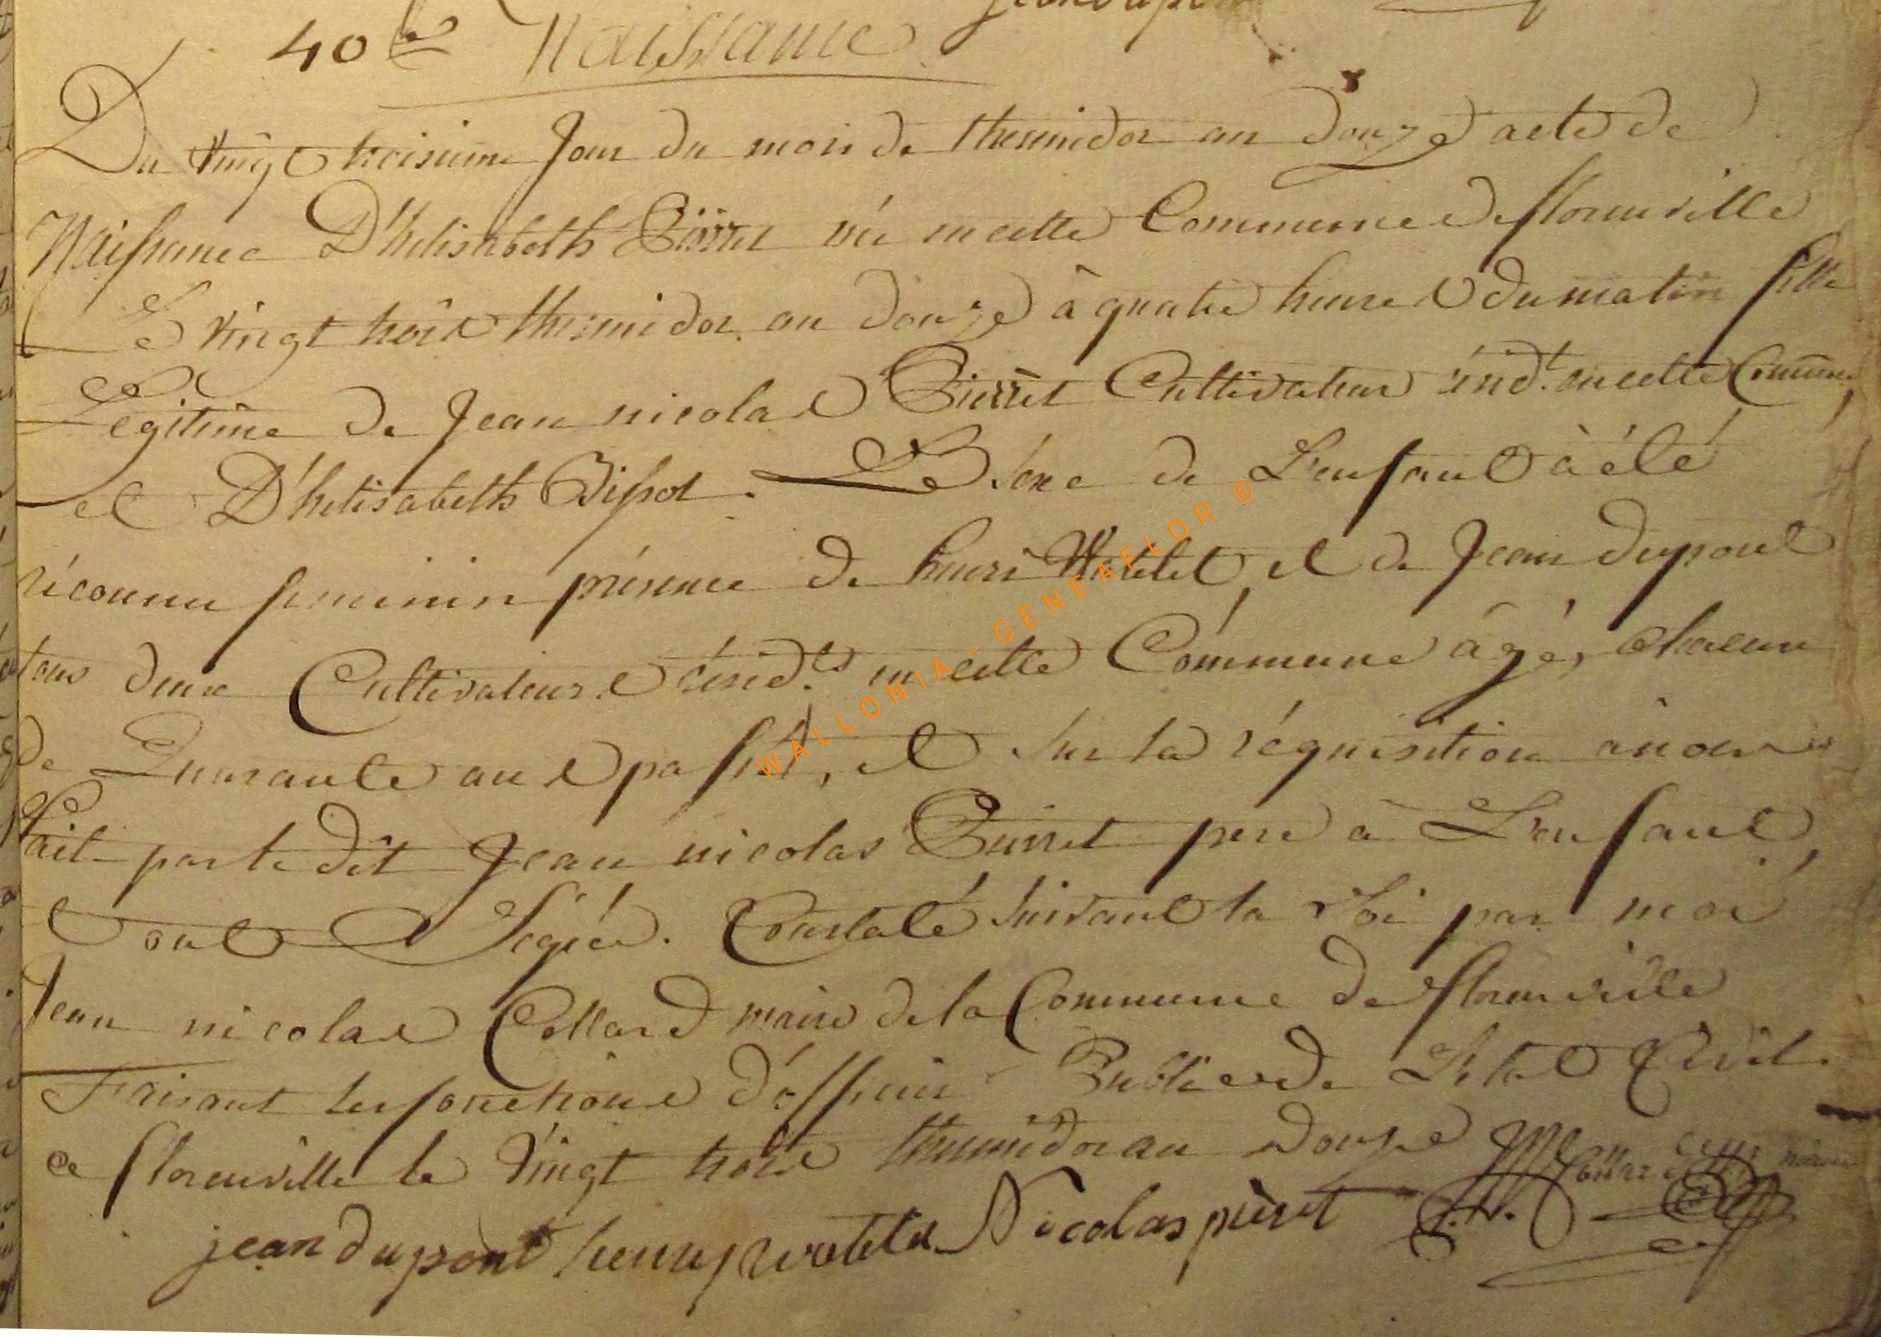 40e Naissance
Du vingt troisieme Jour du mois de thermidor an douze acte de
Naissance D'helisabeth Pierret née en cette Commune de florenville
Le vingt trois thermidor an douze à quatre heures du matin fille
Légitime de Jean nicolas Pierret Cultivateur résidt. en cette Commune,
et D'helisabeth Bissot. Le sexe de L'enfant à été
réconnu feminin présence de henri Watelet, et de Jean dupont
tous deux Cultivateurs résidts en cette Commune âgés chacun
de Quarante ans passés, et sur la réquisition à nous
fait par le dit Jean nicolas Pierret pere à L'enfant,
et ont Signés. Constaté suivant la Loi par moi
Jean nicolas Collard maire de la Commune de florenville
Faisant les fonctions d'officier Public de L'Etat Civil
ce florenville le vingt trois thermidor an douze Collard maire
jean dupont henry watelet Nicolas pieret
WALLONIA - GENEAFLOR ®